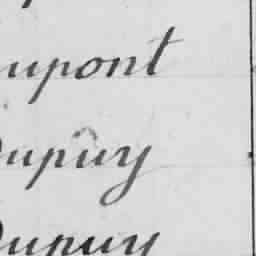 Dupont
Dupuy
Dupuy